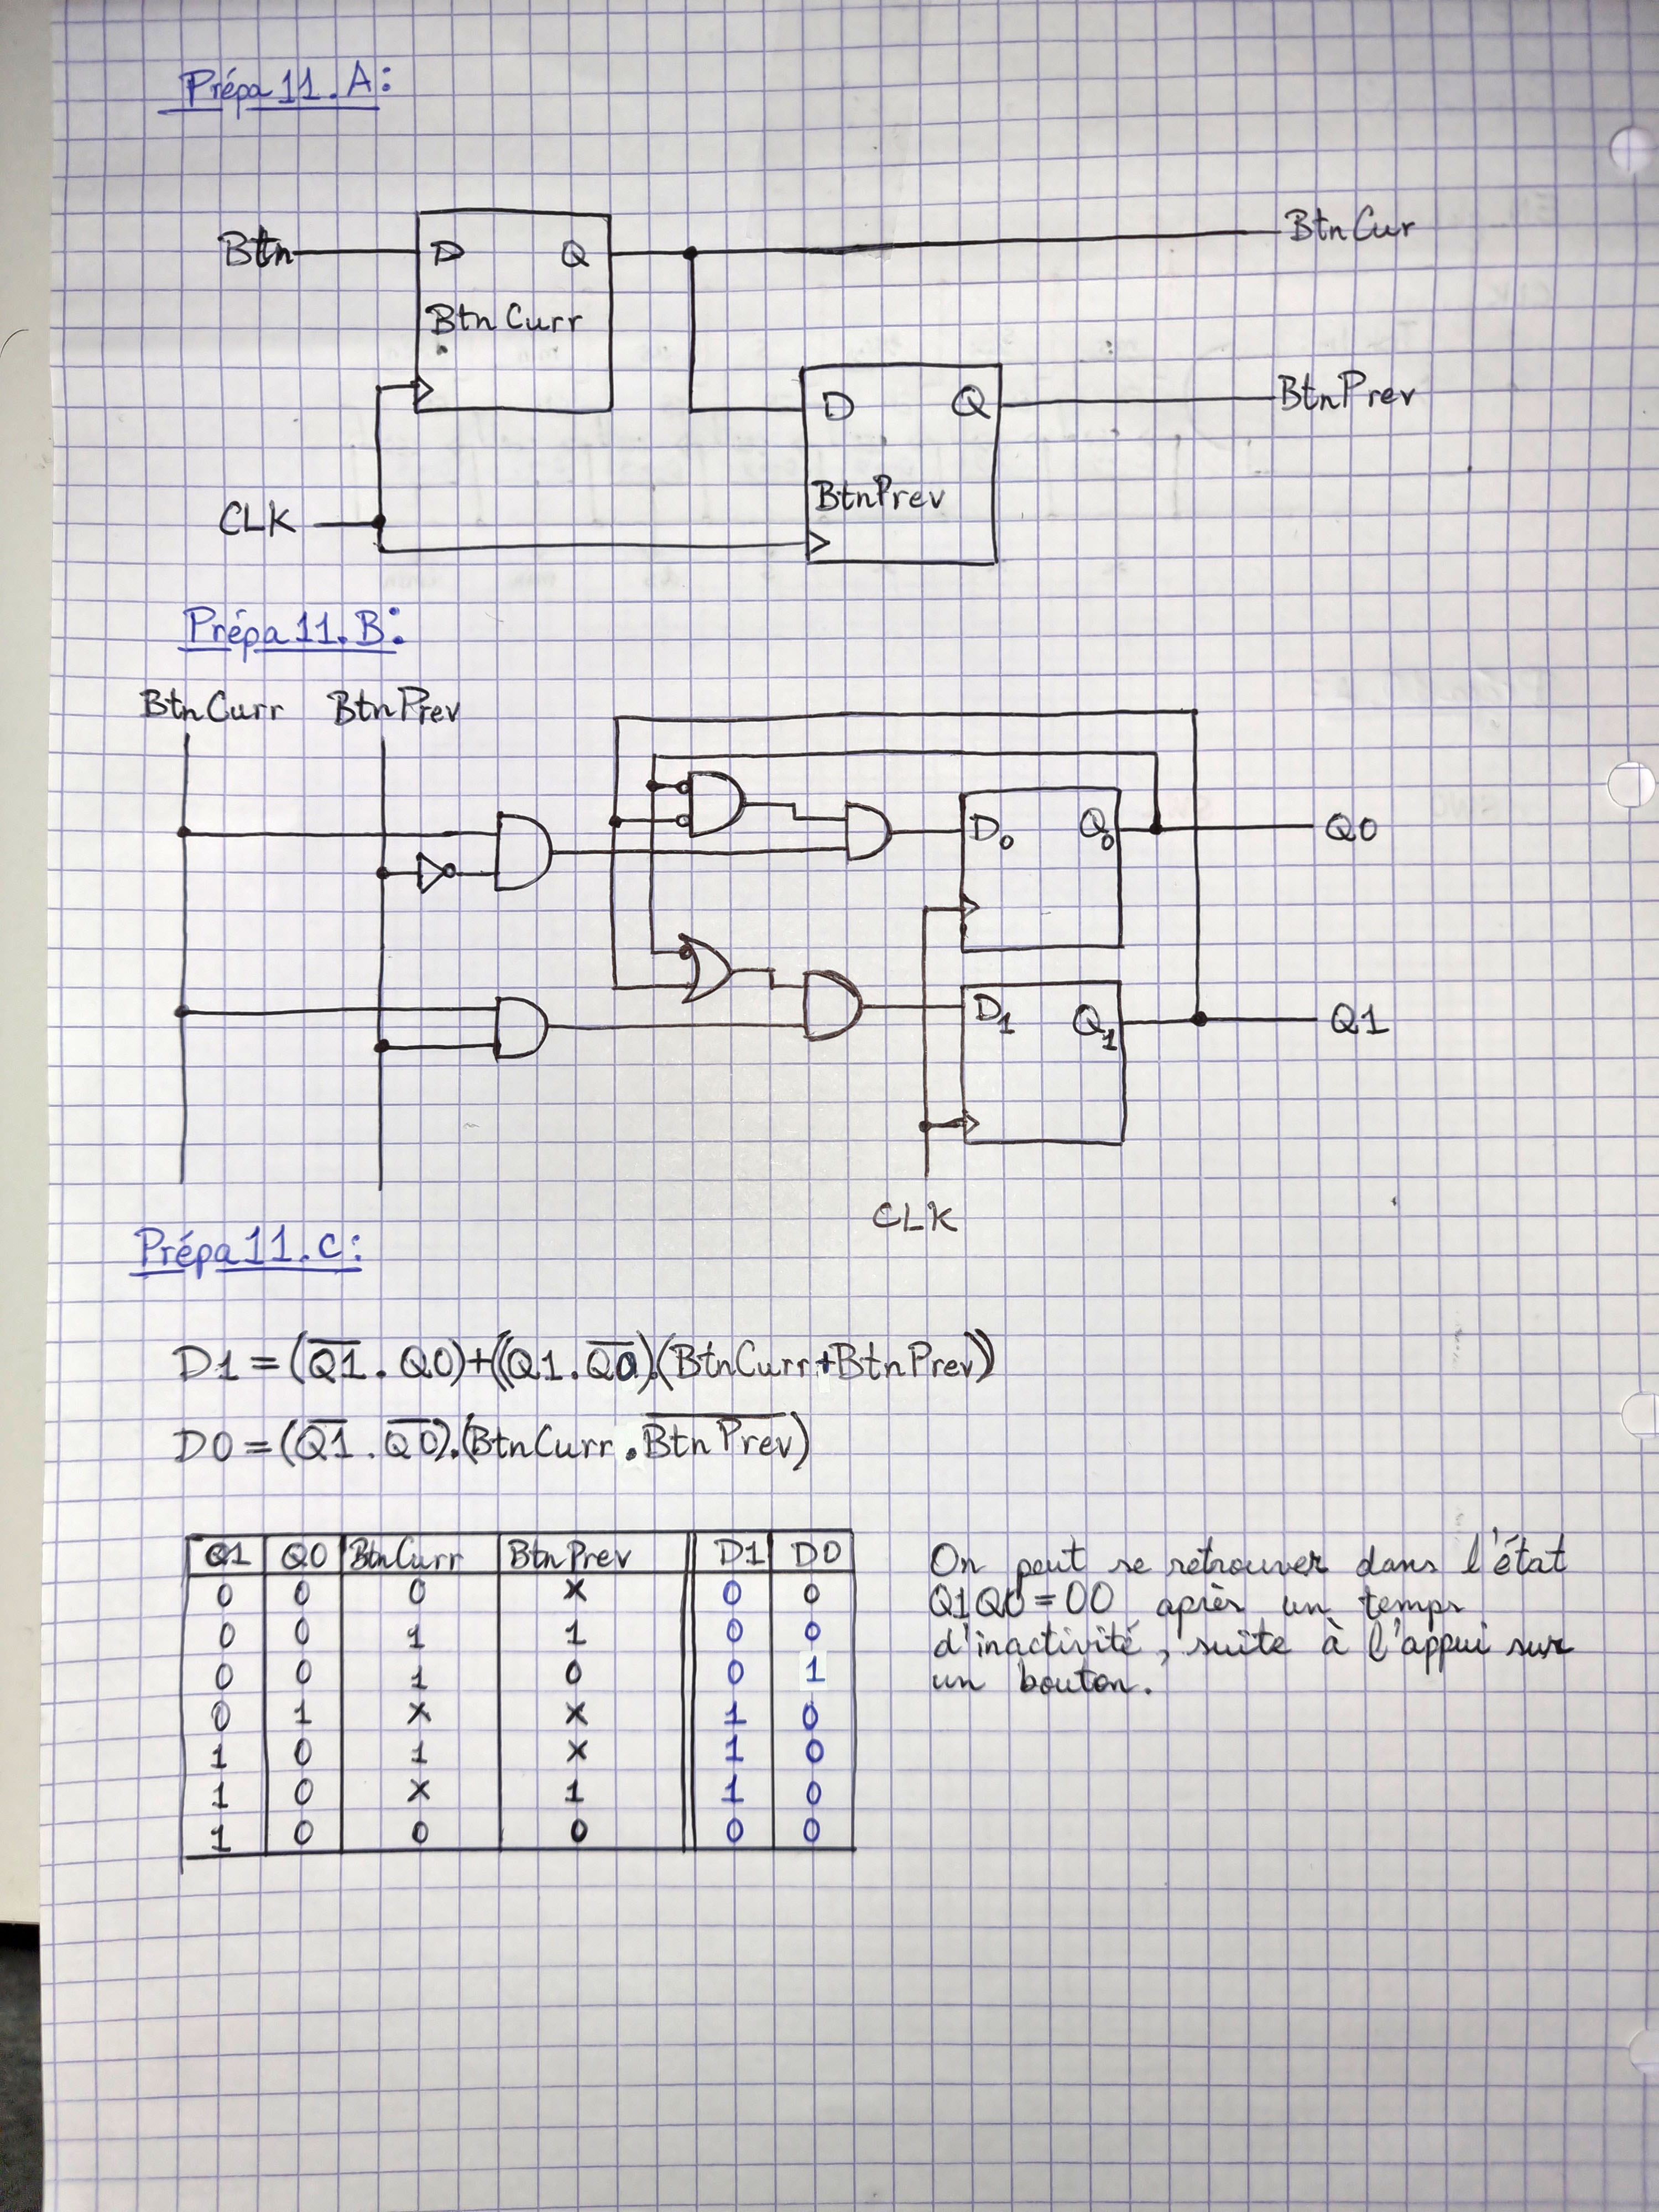 Prépa 11.A:
Btn
D Q
BtnCurr
BtnCur
D Q
BtnPrev
BtnPrev
CLK
Prépa 11.B:
BtnCurr BtnPrev
D₀ Q₀
Q0
D₁ Q₁
Q1
CLK
Prépa 11.C:
D1 = (Q̅1̅ . Q0)+((Q1 . Q̅0̅).(BtnCurr+BtnPrev))
D0 = (Q̅1̅ . Q̅0̅).(BtnCurr . B̅t̅n̅P̅r̅e̅v̅)
Q1 Q0 BtnCurr BtnPrev D1 D0
0 0 0 x 0 0
0 0 1 1 0 0
0 0 1 0 0 1
0 1 x x 1 0
1 0 1 x 1 0
1 0 x 1 1 0
1 0 0 0 0 0
On peut se retrouver dans l'état
Q1Q0 = 00 après un temps
d'inactivité, suite à l'appui sur
un bouton.